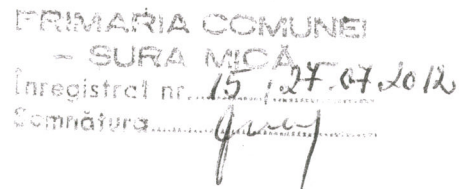 PRIMARIA COMUNEI
- SURA MICĂ
Înregistrat nr. 15 / 27.07.2012
Semnătura